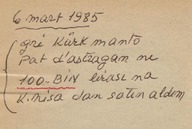 6 mart 1985
gri Kürk manto
Pat d'astragan ne
100-BiN lirası na
dan satın aldım